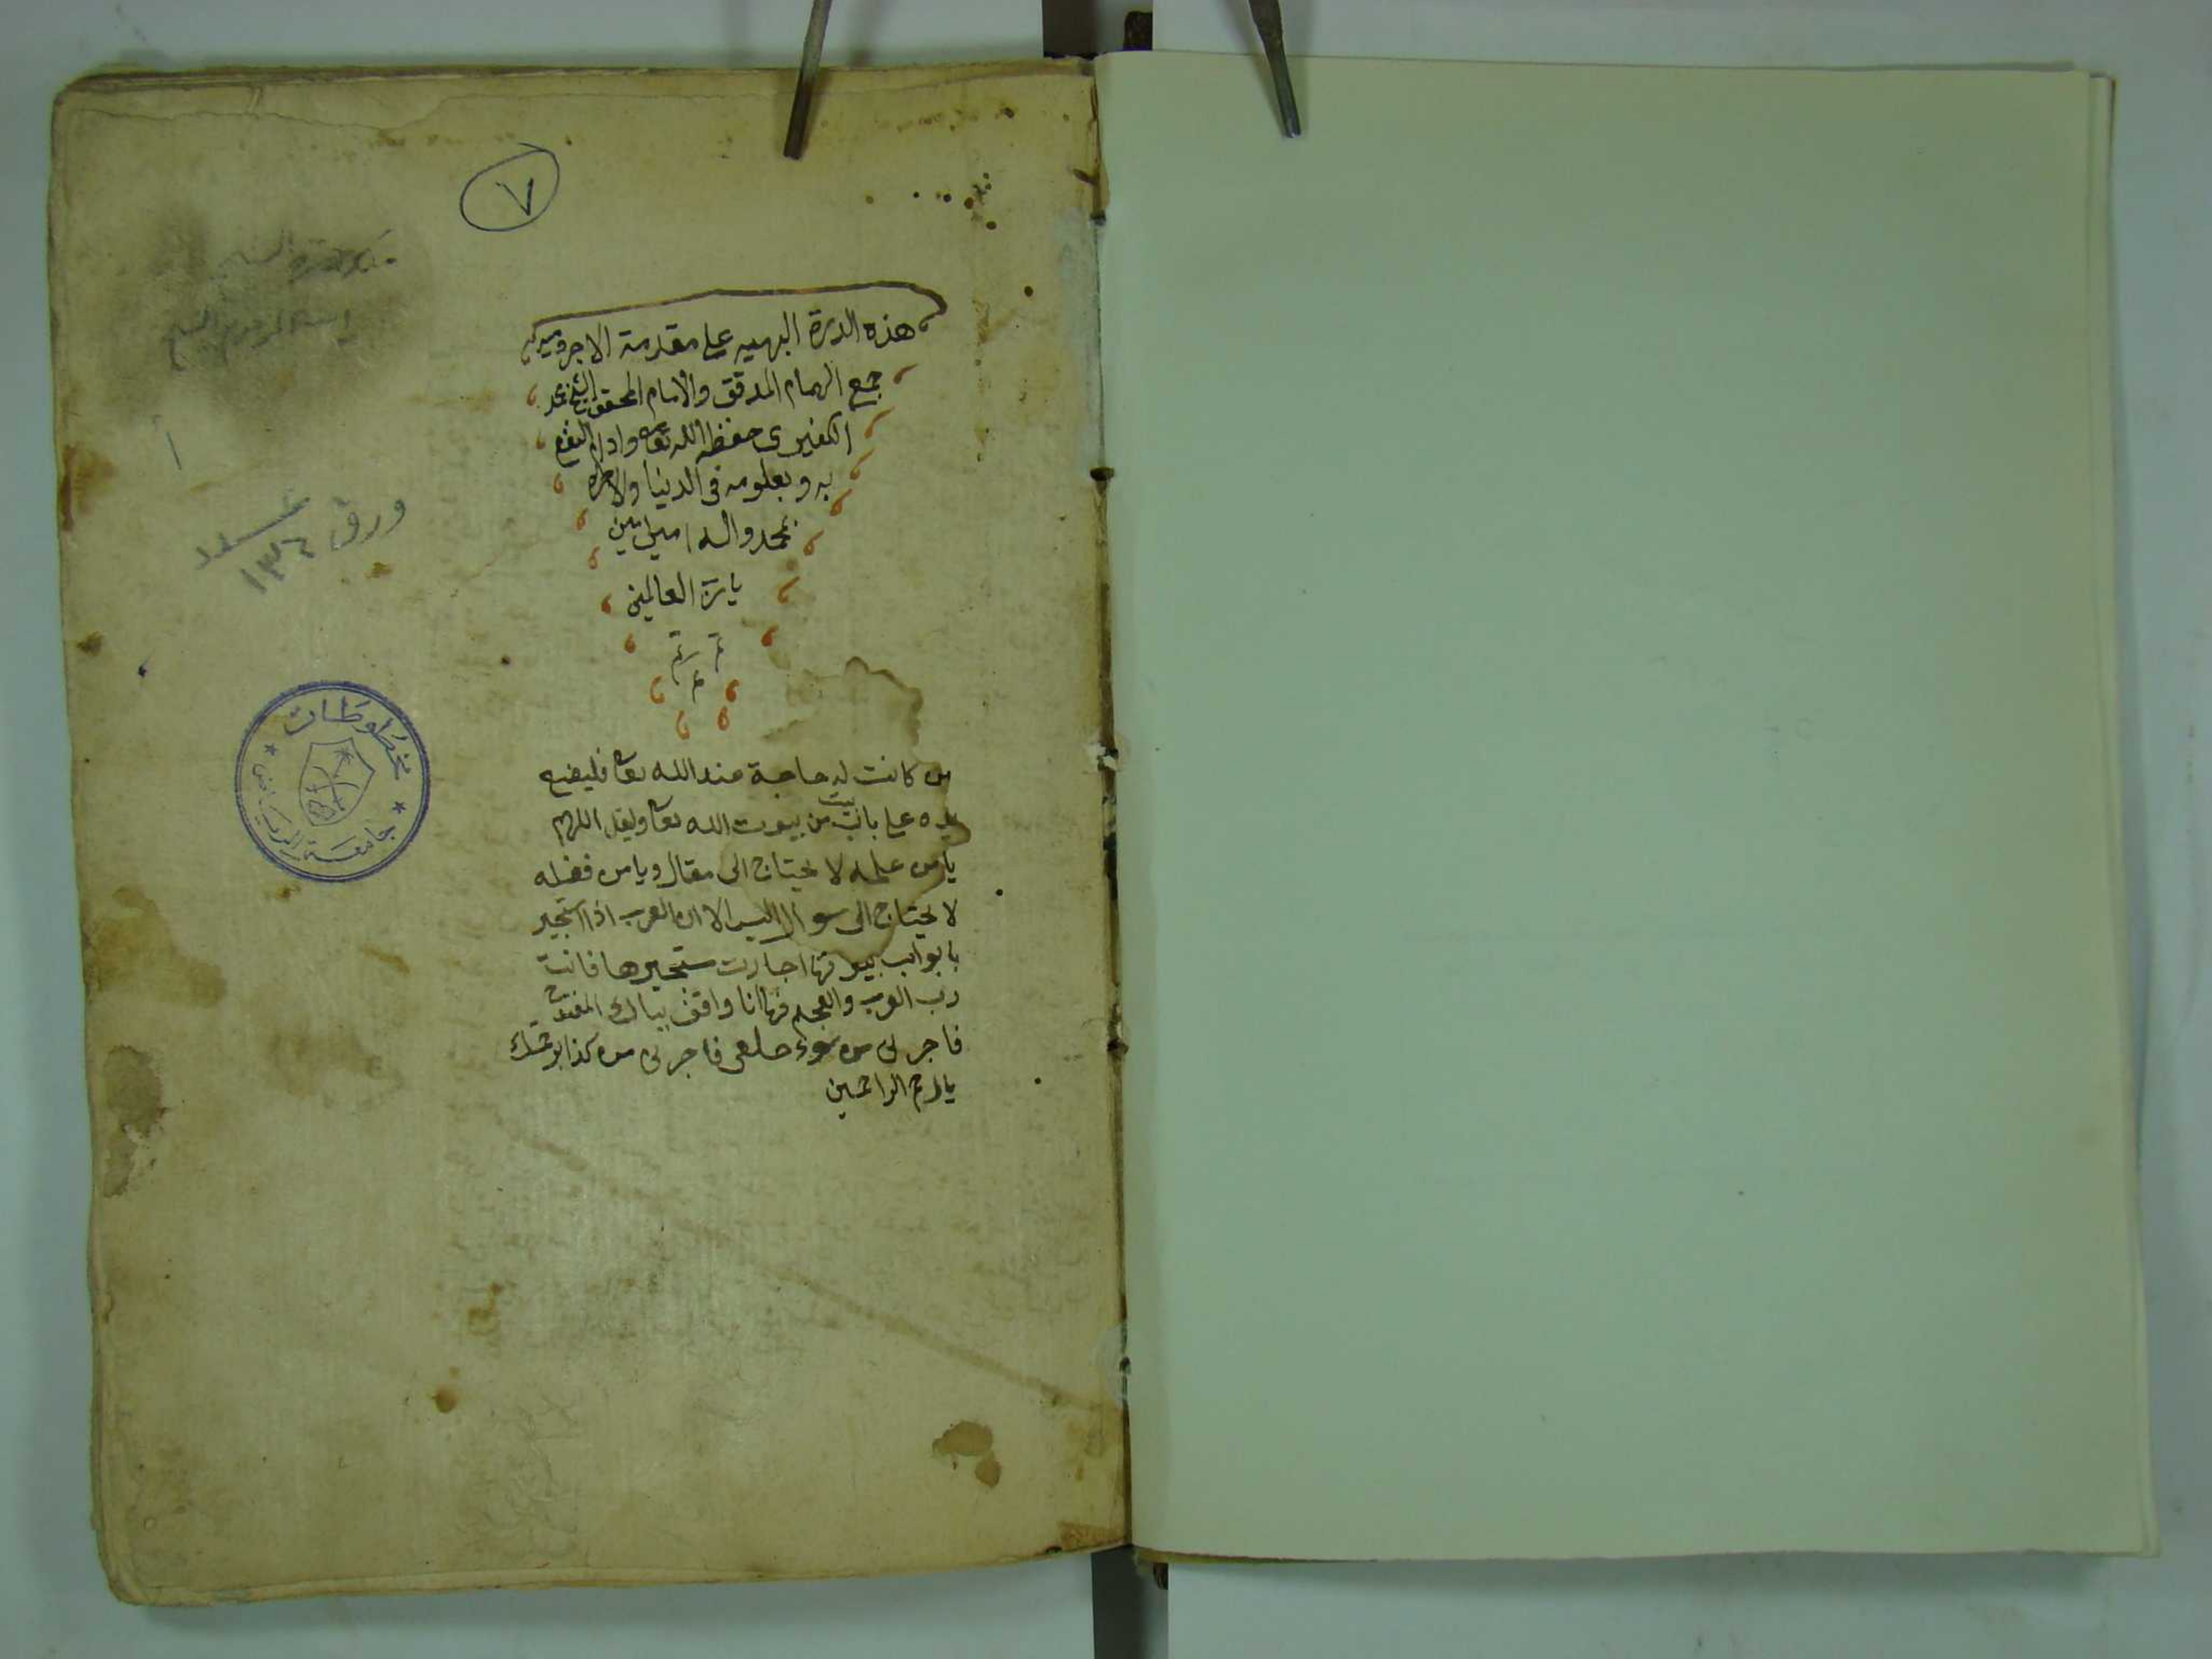 ٧
هذه الدرة البهيه على مقدمة الاجروميه
جمع الهمام المدقق والامام المحقق الشيخ محمد
الكفيرى حفظه الله تعالى وادام النفع
به وبعلومه فى الدنيا والاخره
بمحمد واله امين امين
يا رب العالمين
م م م
م
من كانت له حاجة عند الله تعا فليضع
يده على باب بيت من بيوت الله تعا ويقل اللهم
يا من علمه لا يحتاج الى مقال ويا من فضله
لا يحتاج الى سوال اليس الا ان العرب اذا استجير
بابواب بيوتها اجارت مستجيرها فانت
رب العرب والعجم فها انا واقف ببابك المفتوح
فاجرنى من سوء فاجرنى من كذا برحمتك
يا ارحم الراحمين
ورق
عدد
١٣٤
مخطوطات
جامعة الرياض